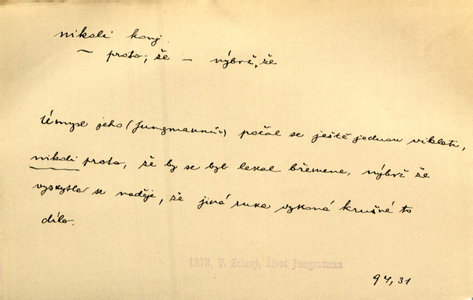 nikoli konj.
~ proto, že – nýbrž, že
Úmysl jeho (Jungmannův) počal se ještě jednou viklati,
nikoli proto, že by se byl lekal břemene, nýbrž že
vyskytla se naděje, že jiná ruka vykoná krušné to
dílo.
1873, V. Zelený, Život Jungmanna
94,31